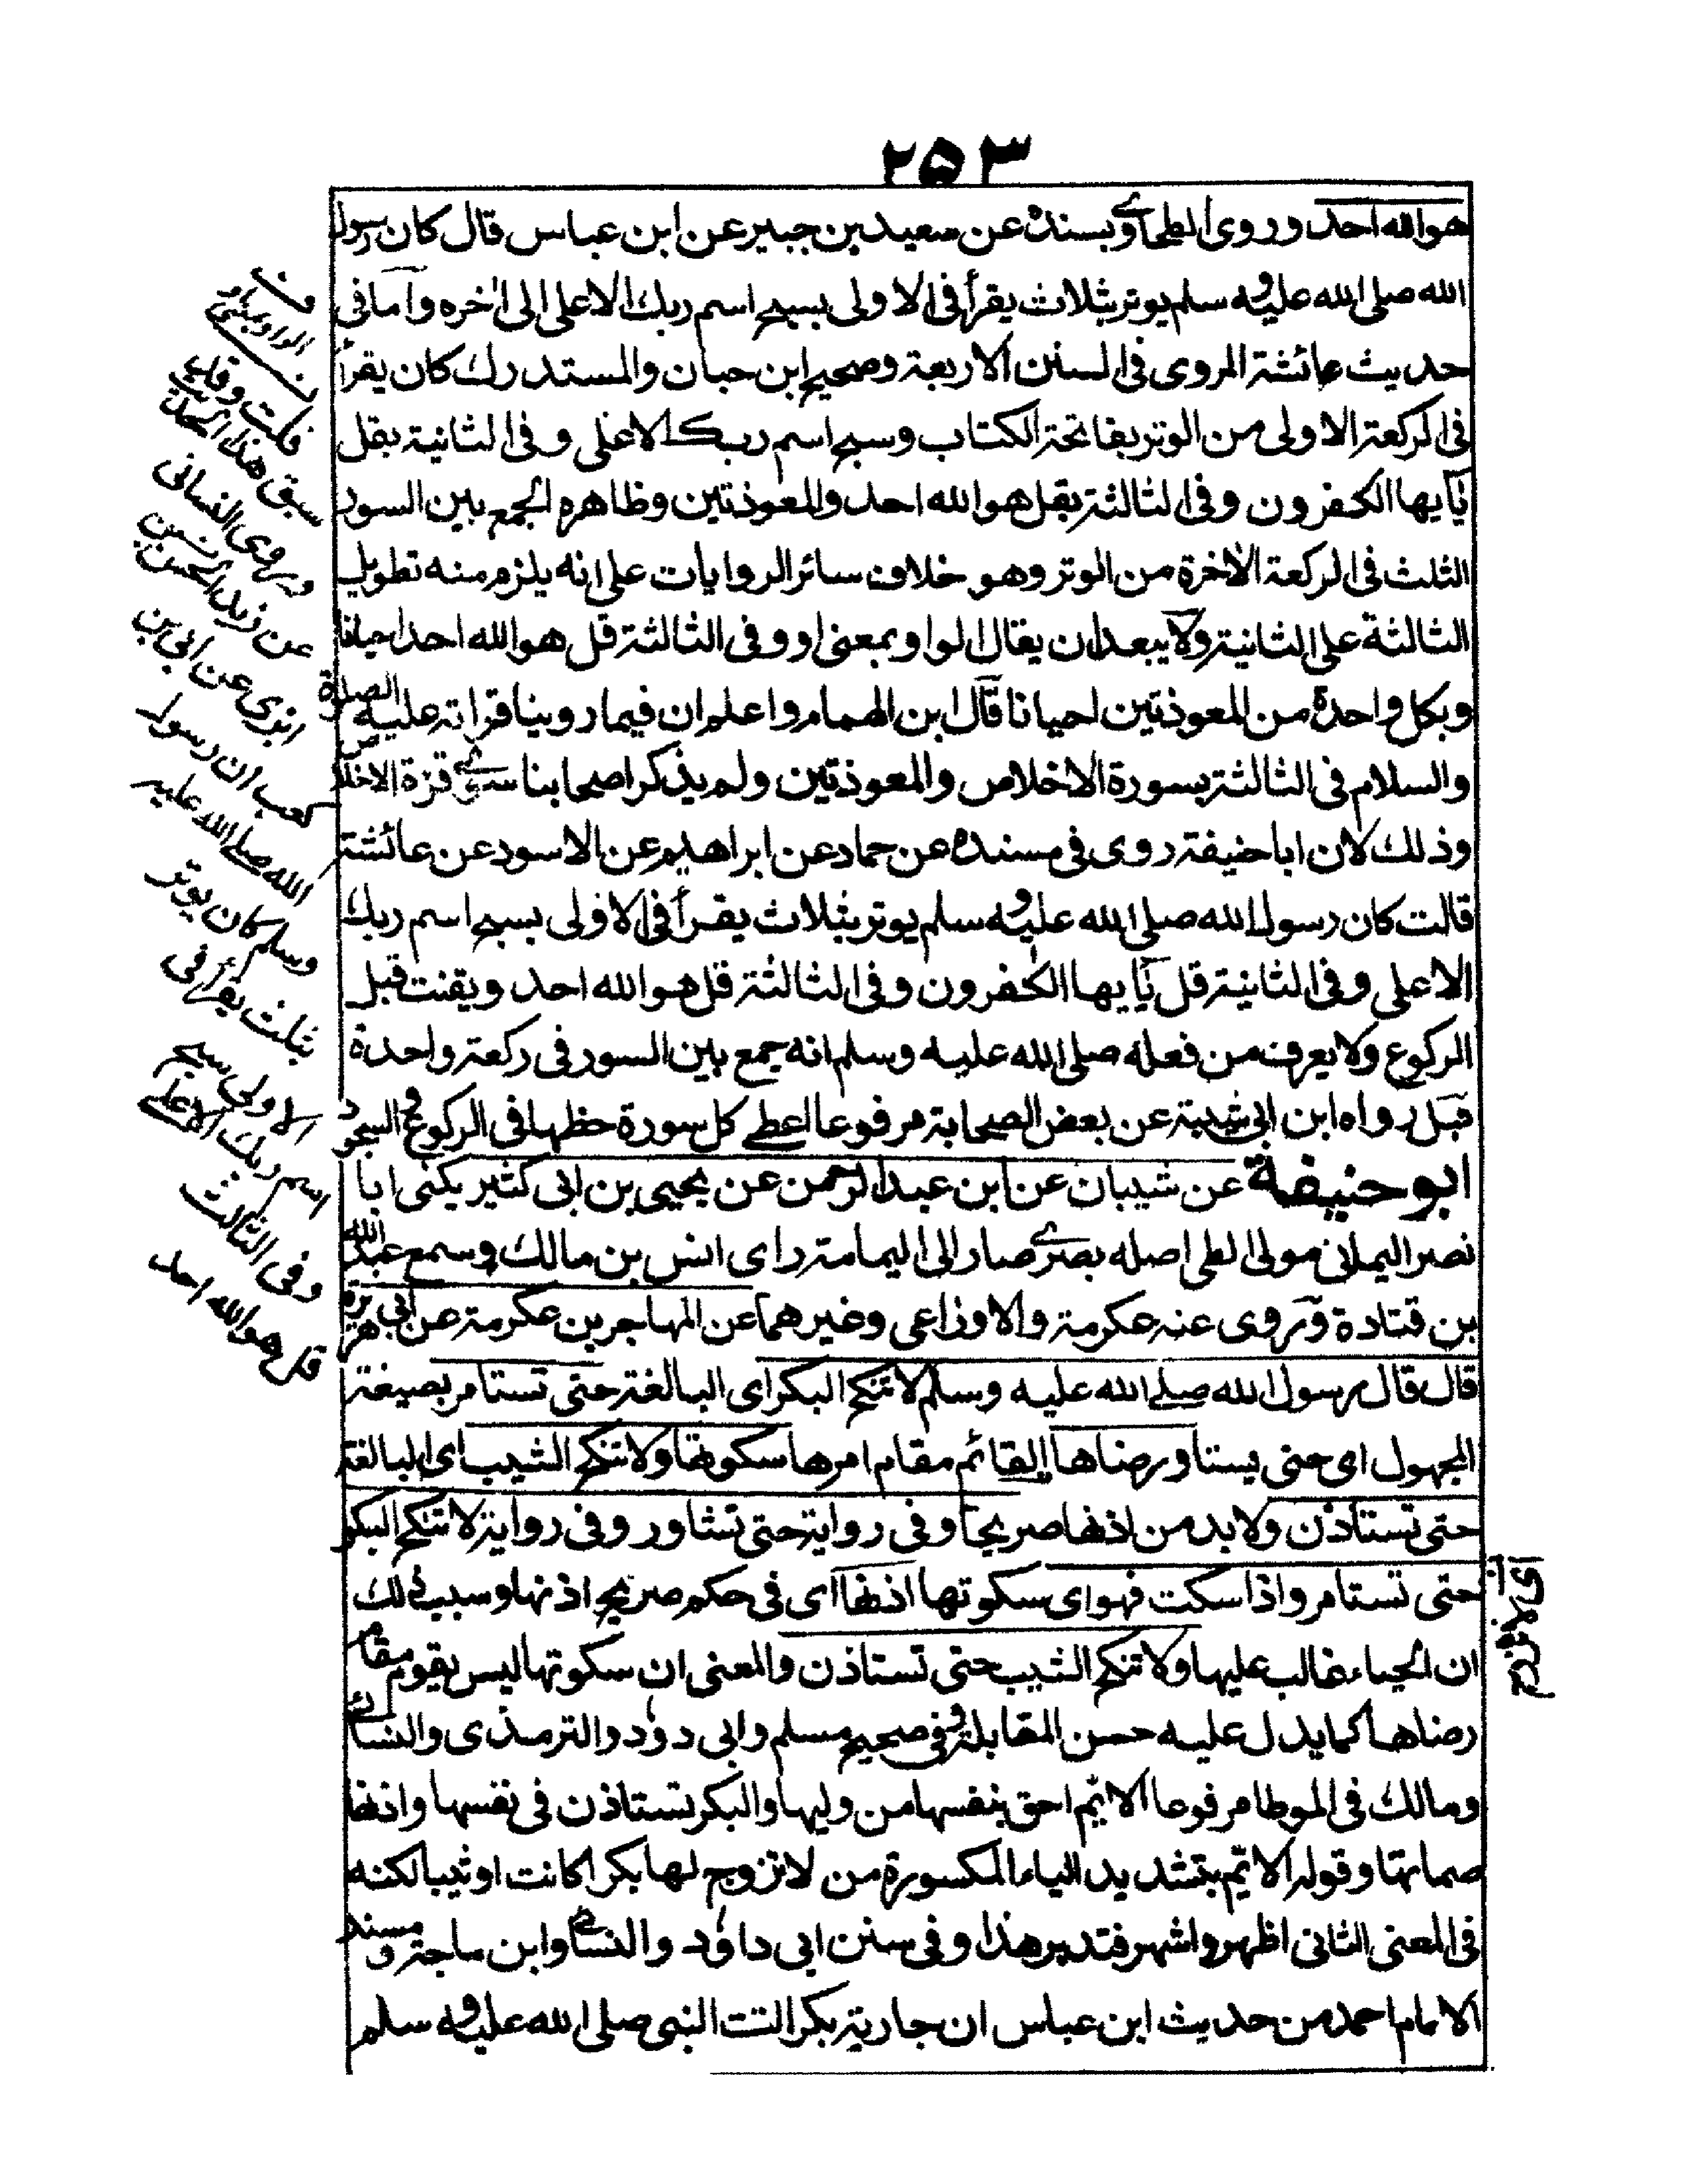 ٢٥٣
هو الله احد وروى الطحاوي بسنده عن سعيد بن جبير عن ابن عباس قال كان رسول
الله صلى الله عليه وسلم يوتر بثلاث يقرأ فى الاولى بسبح اسم ربك الاعلى الى اخره وآما فى
حديث عائشة المروى فى السنن الاربعة وصحيح ابن حبان والمستدرك كان يقرأ
فى الركعة الاولى من الوتر بفاتحة الكتاب وسبح اسم ربك الاعلى وفى الثانية بقل
يٰآيها الكفرون وفى الثالثة بقل هو الله احد والمعوذتين وظاهره الجمع بين السور
الثلث فى الركعة الاخرة من الوتر وهو خلاف سائر الروايات على انه يلزم منه تطويل
الثالثة على الثانية ولا يبعد ان يقال الواو بمعنى او وفى الثالثة قل هو الله احد احيانا
وبكل واحدة من المعوذتين احيانا قال ابن الهمام واعلم ان فيما روينا قراته عليه الصلوة
والسلام فى الثالثة بسورة الاخلاص والمعوذتين ولم يذكر اصحابنا سوى قرة الاخلاص
وذلك لان ابا حنيفة روى فى مسنده عن حماد عن ابراهيم عن الاسود عن عائشة
قالت كان رسول الله صلى الله عليه وسلم يوتر بثلاث يقرأ فى الاولى بسبح اسم ربك
الاعلى وفى الثانية قل يٰآيها الكفرون وفى الثالثة قل هو الله احد ويقنت قبل
الركوع ولا يعرف من فعله صلى الله عليه وسلم انه جمع بين السور فى ركعة واحدة
قبل رواه ابن ابى شيبة عن بعض الصحابة مرفوعا اعطى كل سورة حظها فى الركوع والسجود
ابو حنيفة عن شيبان عن ابن عبد الرحمن عن يحيى بن ابى كثير يكنى ابا
نصر اليمانى مولى لطى اصله بصرى صار الى اليمامة راى انس بن مالك وسمع عبد الله
بن قتادة وروى عنه عكرمة والاوزاعى وغيرهما عن المهاجر بن عكرمة عن ابى هريرة
قال قال رسول الله صلى الله عليه وسلم لا تنكح البكر اى البالغة حتى تستامر بصيغة
المجهول اى حتى يستاور رضاها القائم مقام امرها سكوتها ولا تنكح الثيب اى البالغة
حتى تستاذن ولا بد من اذنها صريحا وفى رواية حتى تشاور وفى رواية لا تنكح البكر
حتى تستامر واذا سكت فهو اى سكوتها اذنها اى فى حكم صريح اذنها وسبب ذلك
ان الحياء غالب عليها ولا تنكح الثيب حتى تستاذن والمعنى ان سكوتها ليس يقوم مقام
رضاها كما يدل عليه حسن المقابلة وفى صحيح مسلم وابى دوٗد والترمذى والنسائى
ومالك فى الموطا مرفوعا الايّم احق بنفسها من وليها والبكر تستاذن فى نفسها واذنها
صماتها وقوله الايّم بتشديد الياء المكسورة من لا تزوج لها بكرا كانت او ثيبا لكنه
فى المعنى الثانى اظهر واشهر فتدبر هذا وفى سنن ابى داوٗد والنسائى وابن ماجة ومسند
الامام احمد من حديث ابن عباس ان جارية بكرا اتت النبى صلى الله عليه وسلم
قلت وقد
سبق هذا الحديث
وروى النسائى
عن
ابزى عن ابى بن
كعب ان رسول
الله صلى الله عليه
وسلم كان يوتر
بثلث يقرأ فى
الاولى سبح
اسم ربك الاعلى
وفى الثالث
قل هو الله احد